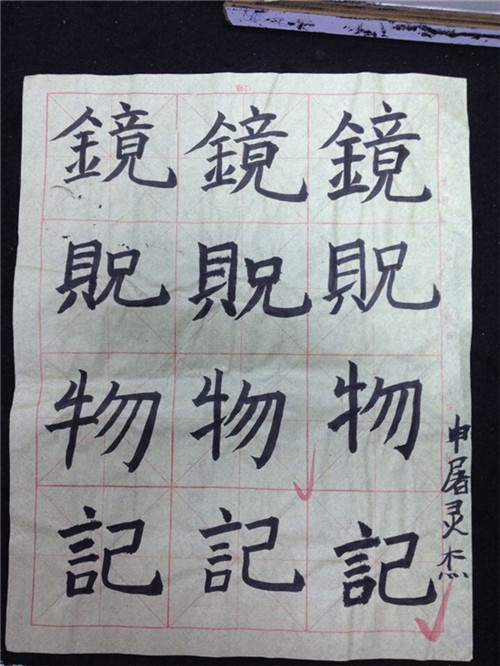 鏡鏡鏡
貺貺貺
物物物
記記記
申屠灵杰